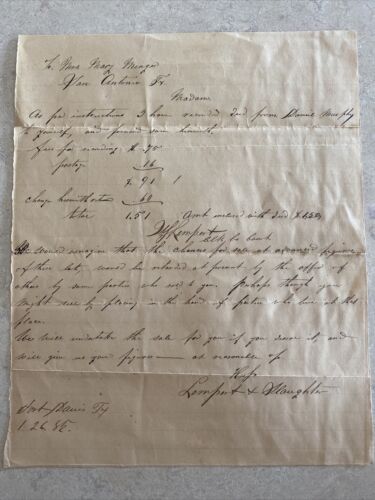 To Mrs Mary Menger
San Antonio Tx.
Madame
As per instructions I have recorded Deed from Daniel Murphy
to yourself, and forward same herewith.
Fees for recording $ .75
postage 16
$ .91
charge 60
total 1.51 Amt recieved with Deed $1.50
Lempert
Clk Co Court
We would imagine that the chances for sale at advanced figures
of these lots, would be retarded at present by the offer of
others by same parties who sold to you. Perhaps though you
might sell by placing in the hands of parties who live at this
place.
We will undertake the sale for you if you desire it, and
will give us your figures — at reasonable
Resp
Lempert & Slaughter
Fort Davis Tx
1.26